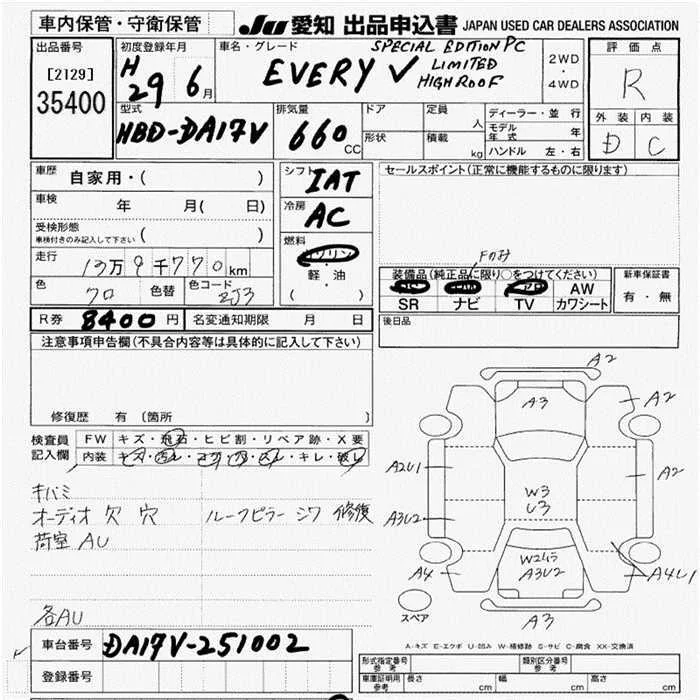 車内保管・守衛保管
JU 愛知 出品申込書 JAPAN USED CAR DEALERS ASSOCIATION
出品番号
[2129]
35400
初度登録年月
H
29 6月
車名・グレード
SPECIAL EDITION PC
EVERY V LIMITED
HIGHROOF
2WD
・
4WD
評価点
R
外装 内装
D C
型式
HBD-DA17V
排気量
660 CC
ドア
形状
定員 人
積載 kg
ディーラー・並行
モデル年式 年
ハンドル 左・右
車歴 自家用・( )
車検 年 月( 日)
受検形態
車検付きのみ記入して下さい ( )
走行 13万9千770km
色 クロ 色替 色コード ZJ3
シフト
IAT
冷房
AC
燃料
ガソリン
・
軽油
( )
セールスポイント(正常に機能するものに限ります)
Fのみ
装備品(純正品に限り○をつけてください)
PS PW AB AW
SR ナビ TV カワシート
新車保証書
有・無
R券 8400円 名変通知期限 月 日
後日品
注意事項申告欄(不具合内容等は具体的に記入して下さい)
修復歴 有 〔箇所 〕
検査員
記入欄
FW キズ・飛石・ヒビ割・リペア跡・X要
内装 キズ・汚れ・コゲ・穴・スレ・キレ・破レ
キバミ
オーディオ欠 穴 ルーフピラー シワ 修復
荷室 AU
各AU
A2
A3
A2
A2U1
A2
W3
U3
A3U2
W2455
A3U2
A4
A4U1
A3
スペア
A-キズ E-エクボ U-凹み W-補修跡 S-サビ C-腐食 XX-交換済
車台番号 DA17V-251002
登録番号
形式指定番号
参考
類別区分番号
参考
車庫証明用
参考
長さ cm 幅 cm 高さ cm